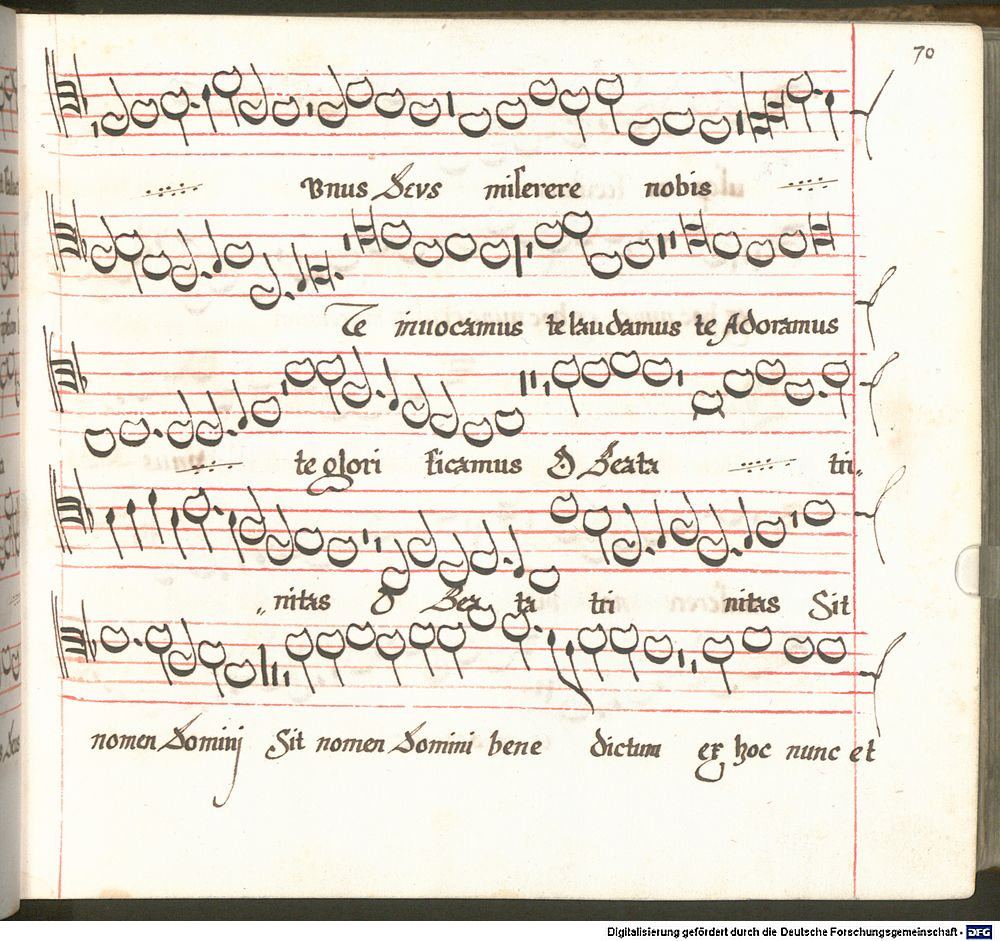 70
Vnus Deus miserere nobis
Te inuocamus te laudamus te Adoramus
te glori ficamus O Beata tri„
„nitas O Bea ta tri nitas Sit
nomen Dominij Sit nomen Domini bene dictum ex hoc nunc et
Digitalisierung gefördert durch die Deutsche Forschungsgemeinschaft - DFG